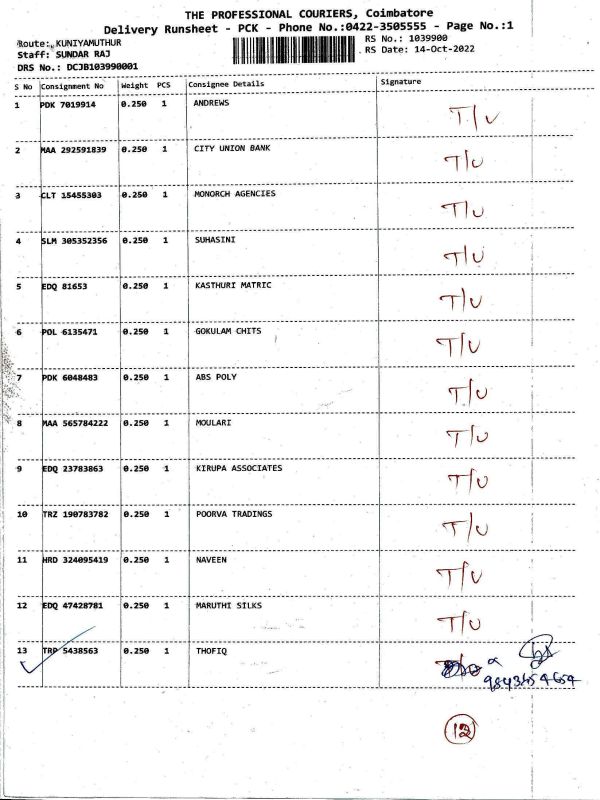 THE PROFESSIONAL COURIERS, Coimbatore
Delivery Runsheet - PCK - Phone No.:0422-3505555 - Page No.:1
Route: KUNIYAMUTHUR RS No.: 1039900
Staff: SUNDAR RAJ RS Date: 14-Oct-2022
DRS No.: DCJB103990001
S No Consignment No Weight PCS Consignee Details Signature
1 PDK 7019914 0.250 1 ANDREWS T/U
2 MAA 292591839 0.250 1 CITY UNION BANK T/U
3 CLT 15455303 0.250 1 MONORCH AGENCIES T/U
4 SLM 305352356 0.250 1 SUHASINI T/U
5 EDQ 81653 0.250 1 KASTHURI MATRIC T/U
6 POL 6135471 0.250 1 GOKULAM CHITS T/U
7 PDK 6048483 0.250 1 ABS POLY T/U
8 MAA 565784222 0.250 1 MOULARI T/U
9 EDQ 23783863 0.250 1 KIRUPA ASSOCIATES T/U
10 TRZ 190783782 0.250 1 POORVA TRADINGS T/U
11 HRD 324095419 0.250 1 NAVEEN T/U
12 EDQ 47428781 0.250 1 MARUTHI SILKS T/U
13 TRP 5438563 0.250 1 THOFIQ
12